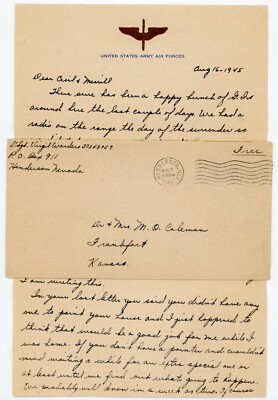 UNITED STATES ARMY AIR FORCES
Aug 16-1945
Dear Avis & Merrill
There sure has been a happy bunch of G.I.s
around here the last couple of days. We had a
radio on the range the day of the surrender so
Sgt. Virgil 37543729
P.O. Box 911
Henderson Nevada
Free
Dr & Mrs M. O. Coleman
Frankfort
Kansas.
I am writing this.
In your last letter you said you didn't have any
one to paint your house and I just happened to
think that would be a good job for me while I
was home. If you don't have a painter and wouldn't
mind waiting a while for an extra special one or
at least until we find out what's going to happen.
We probably will know in a week as time, Of course